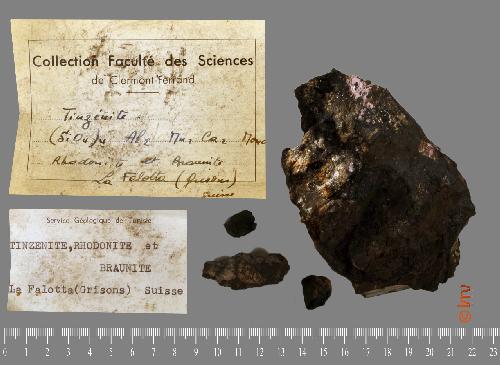 Collection Faculté des Sciences
de Clermont-Ferrand
Tinzénite
(SiO4)4 Al2
Rhodonite et Braunite
La Falotta
Suisse
Service Géologique de Tunisie
TINZENITE,RHODONITE et
BRAUNITE
La Falotta(Grisons) Suisse
0 1 2 3 4 5 6 7 8 9 10 11 12 13 14 15 16 17 18 19 20 21 22 23